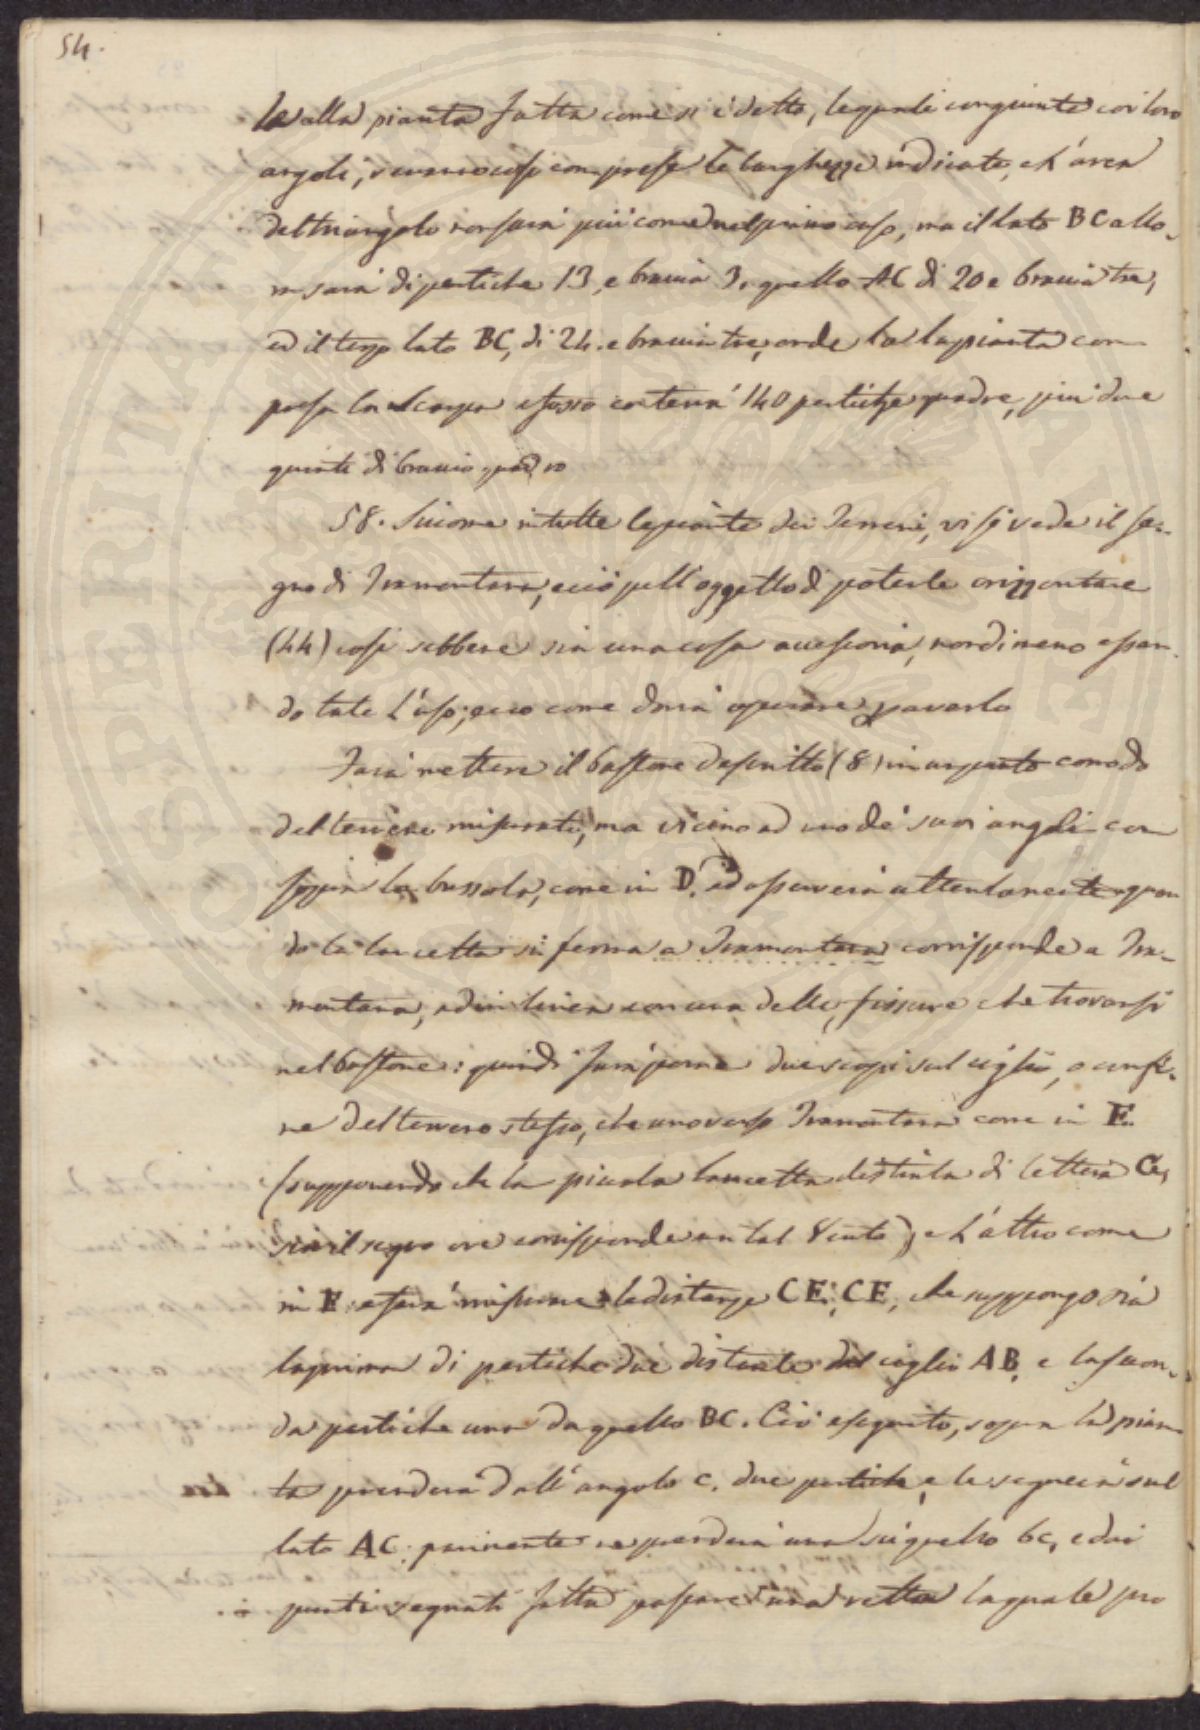 54.
la alla pianta fatta come si è detto, le quali congiunte coi loro
angoli, verranno così comprese le larghezze indicate, e l'area
del triangolo non sarà più come nel primo caso, ma il lato BC allo-
ra sarà di pertiche 13, e braccia 3, quello AC di 20 e braccia tre,
ed il terzo lato BC, di 24. e braccia tre, onde la pianta com
presa la scarpa e fosso conterrà 140 pertiche quadre, più due
quinti di braccio quadro
58. Siccome in tutte le piante dei Terreni, vi si vede il se-
gno di Tramontana, e ciò pell'oggetto di poterle orizzontare
(44) così sebbene sia una cosa accessoria, nondimeno essen
do tale l'uso, ecco come dovrà operare p. averlo
Farà mettere il bastone descritto (8) in un punto comodo
del terreno misurato, ma vicino ad uno de' suoi angoli con
sopra la bussola, come in D. ed osserverà attentamente quan
do la lancetta si ferma a Tramontana corrisponde a Tra-
montana, ed in linea con una delle fissure che trovansi
nel bastone: quindi farà porre due scopi sul ciglio, o confi-
ne del terreno stesso, che uno verso Tramontana come in E.
(supponendo che la piccola lancetta distinta di lettera C,
sia il segno ove corrisponde un tal Vento), e l'altro come
in F. e farà misurare le distanze CE, CE, che suppongo sia
la prima di pertiche due distante dal ciglio AB, e la secon-
da pertiche una da quello BC. Ciò eseguito, sopra la pian
ta prenderà dall'angolo C. due pertiche, e le segnerà sul
lato AC. parimente ne prenderà una su quello bc, e dai
punti segnati fatta passare una retta la quale pro